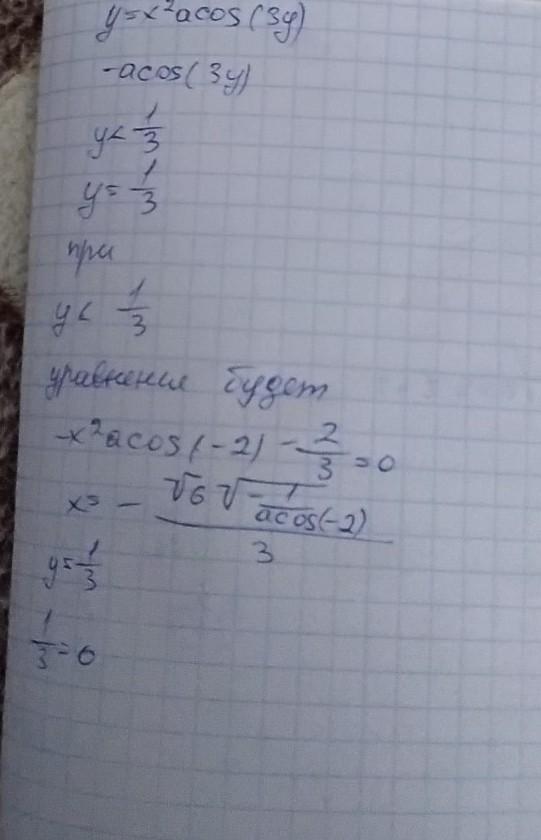 y=x²acos(3y)
-acos(3y)
y< 1/3
y= 1/3
при
y< 1/3
уравнение будет
-x²acos(-2) - 2/3 =0
x= - √6 √(-1/acos(-2)) / 3
y= 1/3
1/3 = 0